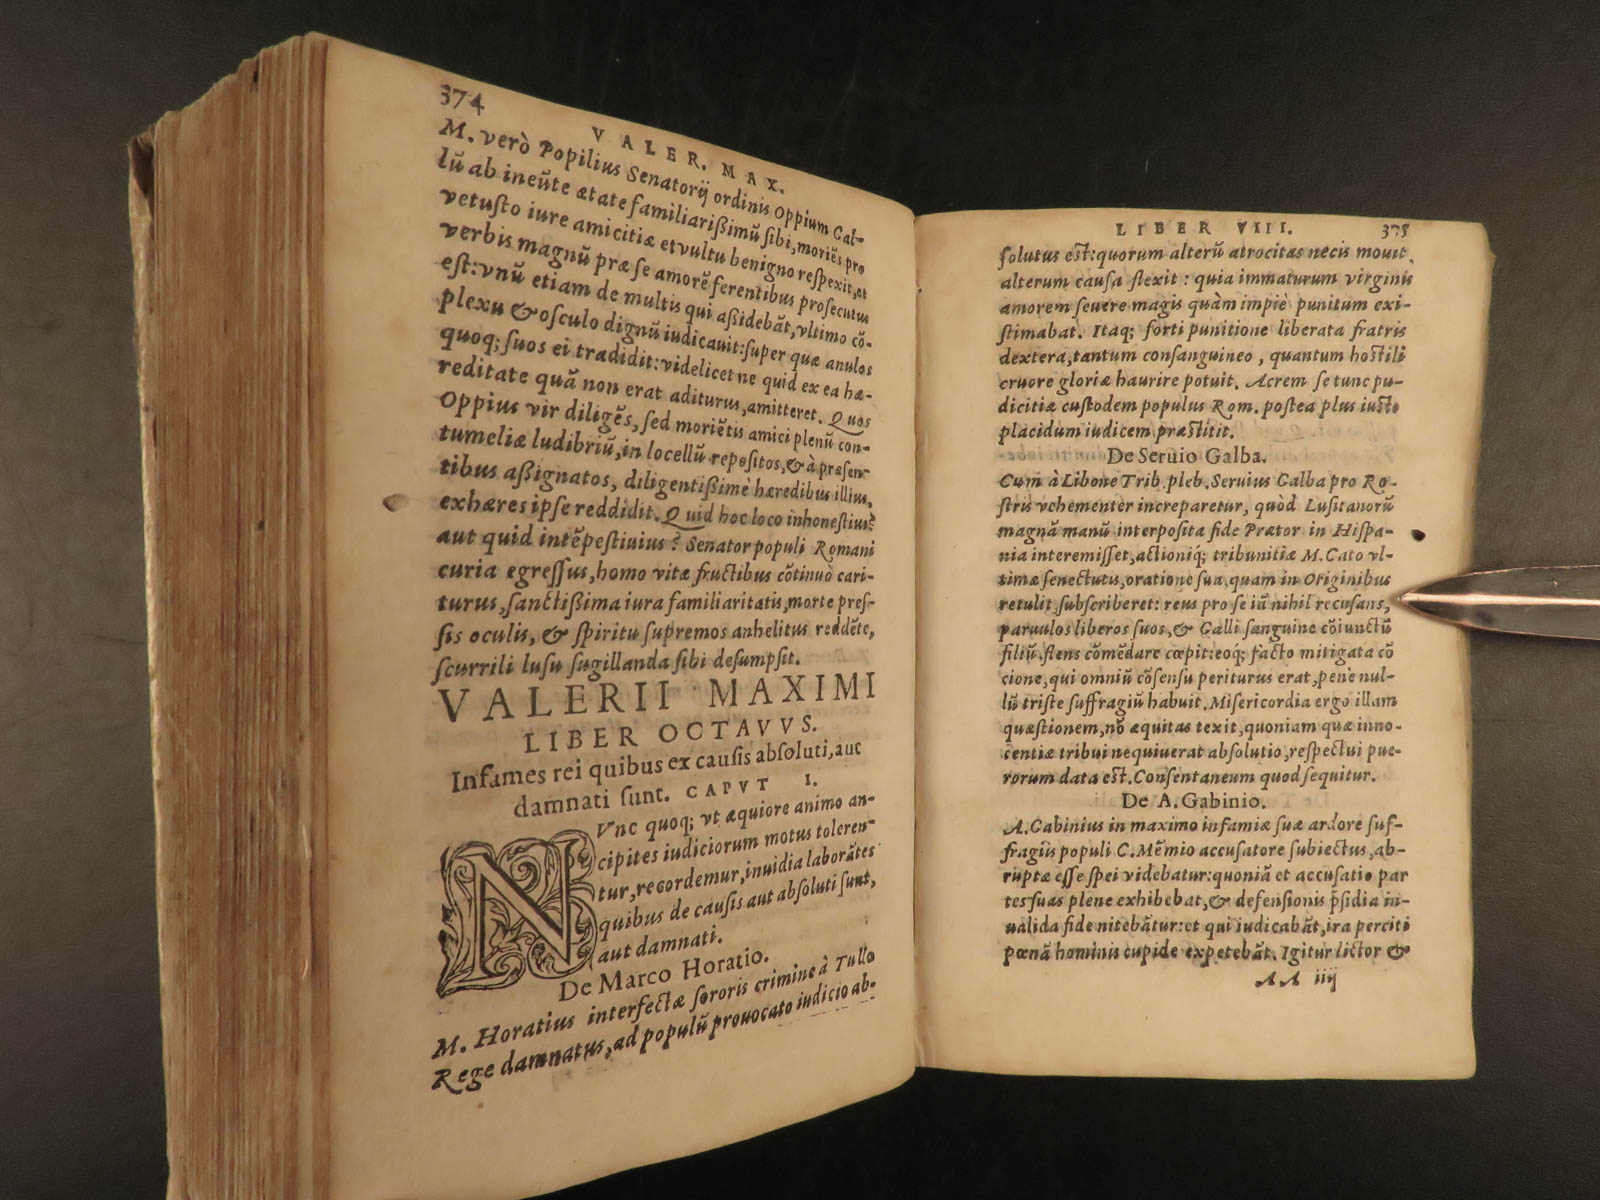 374
VALER. MAX.
M. verò Popilius Senatorij ordinis Oppium Gal-
lũ ab ineũte ætate familiarißimũ sibi, moriẽs pro
vetusto iure amicitiæ et vultu benigno respexit, et
verbis magnũ præ se amorẽ ferentibus prosecutus
est: vnũ etiam de multis qui aßidebãt, vltimo cõ-
plexu & osculo dignũ iudicauit: super quæ anulos
quoq; suos ei tradidit: videlicet ne quid ex ea hæ-
reditate quã non erat aditurus, amitteret. Quos
Oppius vir diligẽs, sed moriẽtis amici plenũ con-
tumeliæ ludibriũ, in locellũ repositos, & à præsen-
tibus aßignatos, diligentißimè hæredibus illius,
exhæres ipse reddidit. Quid hoc loco inhonestius?
aut quid intẽpestiuius? Senator populi Romani
curia egressus, homo vitæ fructibus cõtinuò cari-
turus, sanctißima iura familiaritatis, morte pres-
sis oculis, & spiritu supremos anhelitus reddẽte,
scurrili lusu sugillanda sibi desumpsit.
VALERII MAXIMI
LIBER OCTAVVS.
Infames rei quibus ex causis absoluti, aut
damnati sunt. CAPVT I.
NVnc quoq; vt æquiore animo an-
cipites iudiciorum motus toleren-
tur, recordemur, inuidia laborãtes
quibus de causis aut absoluti sunt,
aut damnati.
De Marco Horatio.
M. Horatius interfectæ sororis crimine à Tullo
Rege damnatus, ad populũ prouocato iudicio ab-
LIBER VIII. 375
solutus est: quorum alterũ atrocitas necis mouit,
alterum causa flexit: quia immaturum virginis
amorem seuere magis quàm impiè punitum exi-
stimabat. Itaq; forti punitione liberata fratris
dextera, tantum consanguineo, quantum hostili
cruore gloriæ haurire potuit. Acrem se tunc pu-
dicitiæ custodem populus Rom. postea plus iusto
placidum iudicem præstitit.
De Seruio Galba.
Cum à Libone Trib. pleb. Seruius Galba pro Ro-
stris vehementer increparetur, quòd Lusitanorũ
magnã manũ interposita fide Prætor in Hispa-
nia interemisset, actioniq; tribunitiæ M. Cato vl-
timæ senectutis, oratione sua, quam in Originibus
retulit, subscriberet: reus pro se iã nihil recusans,
paruulos liberos suos, & Galli sanguine cõiunctũ
filiũ, flens cõmẽdare cœpit: eoq; facto mitigata cõ
cione, qui omniũ cõsensu periturus erat, penè nul-
lũ triste suffragiũ habuit. Misericordia ergo illam
quæstionem, nõ æquitas texit, quoniam quæ inno-
cẽtiæ tribui nequiuerat absolutio, respectui pue-
rorum data est. Consentaneum quod sequitur.
De A. Gabinio.
A. Gabinius in maximo infamiæ suæ ardore suf-
fragiis populi C. Mẽmio accusatore subiectus, ab-
ruptæ esse spei videbatur: quoniã et accusatio par
tes suas plene exhibebat, & defensionis p̃sidia in-
ualida fide nitebãtur: et qui iudicabãt, ira perciti
pœnã hominis cupide expetebãt. Igitur lictor &
AA iiij